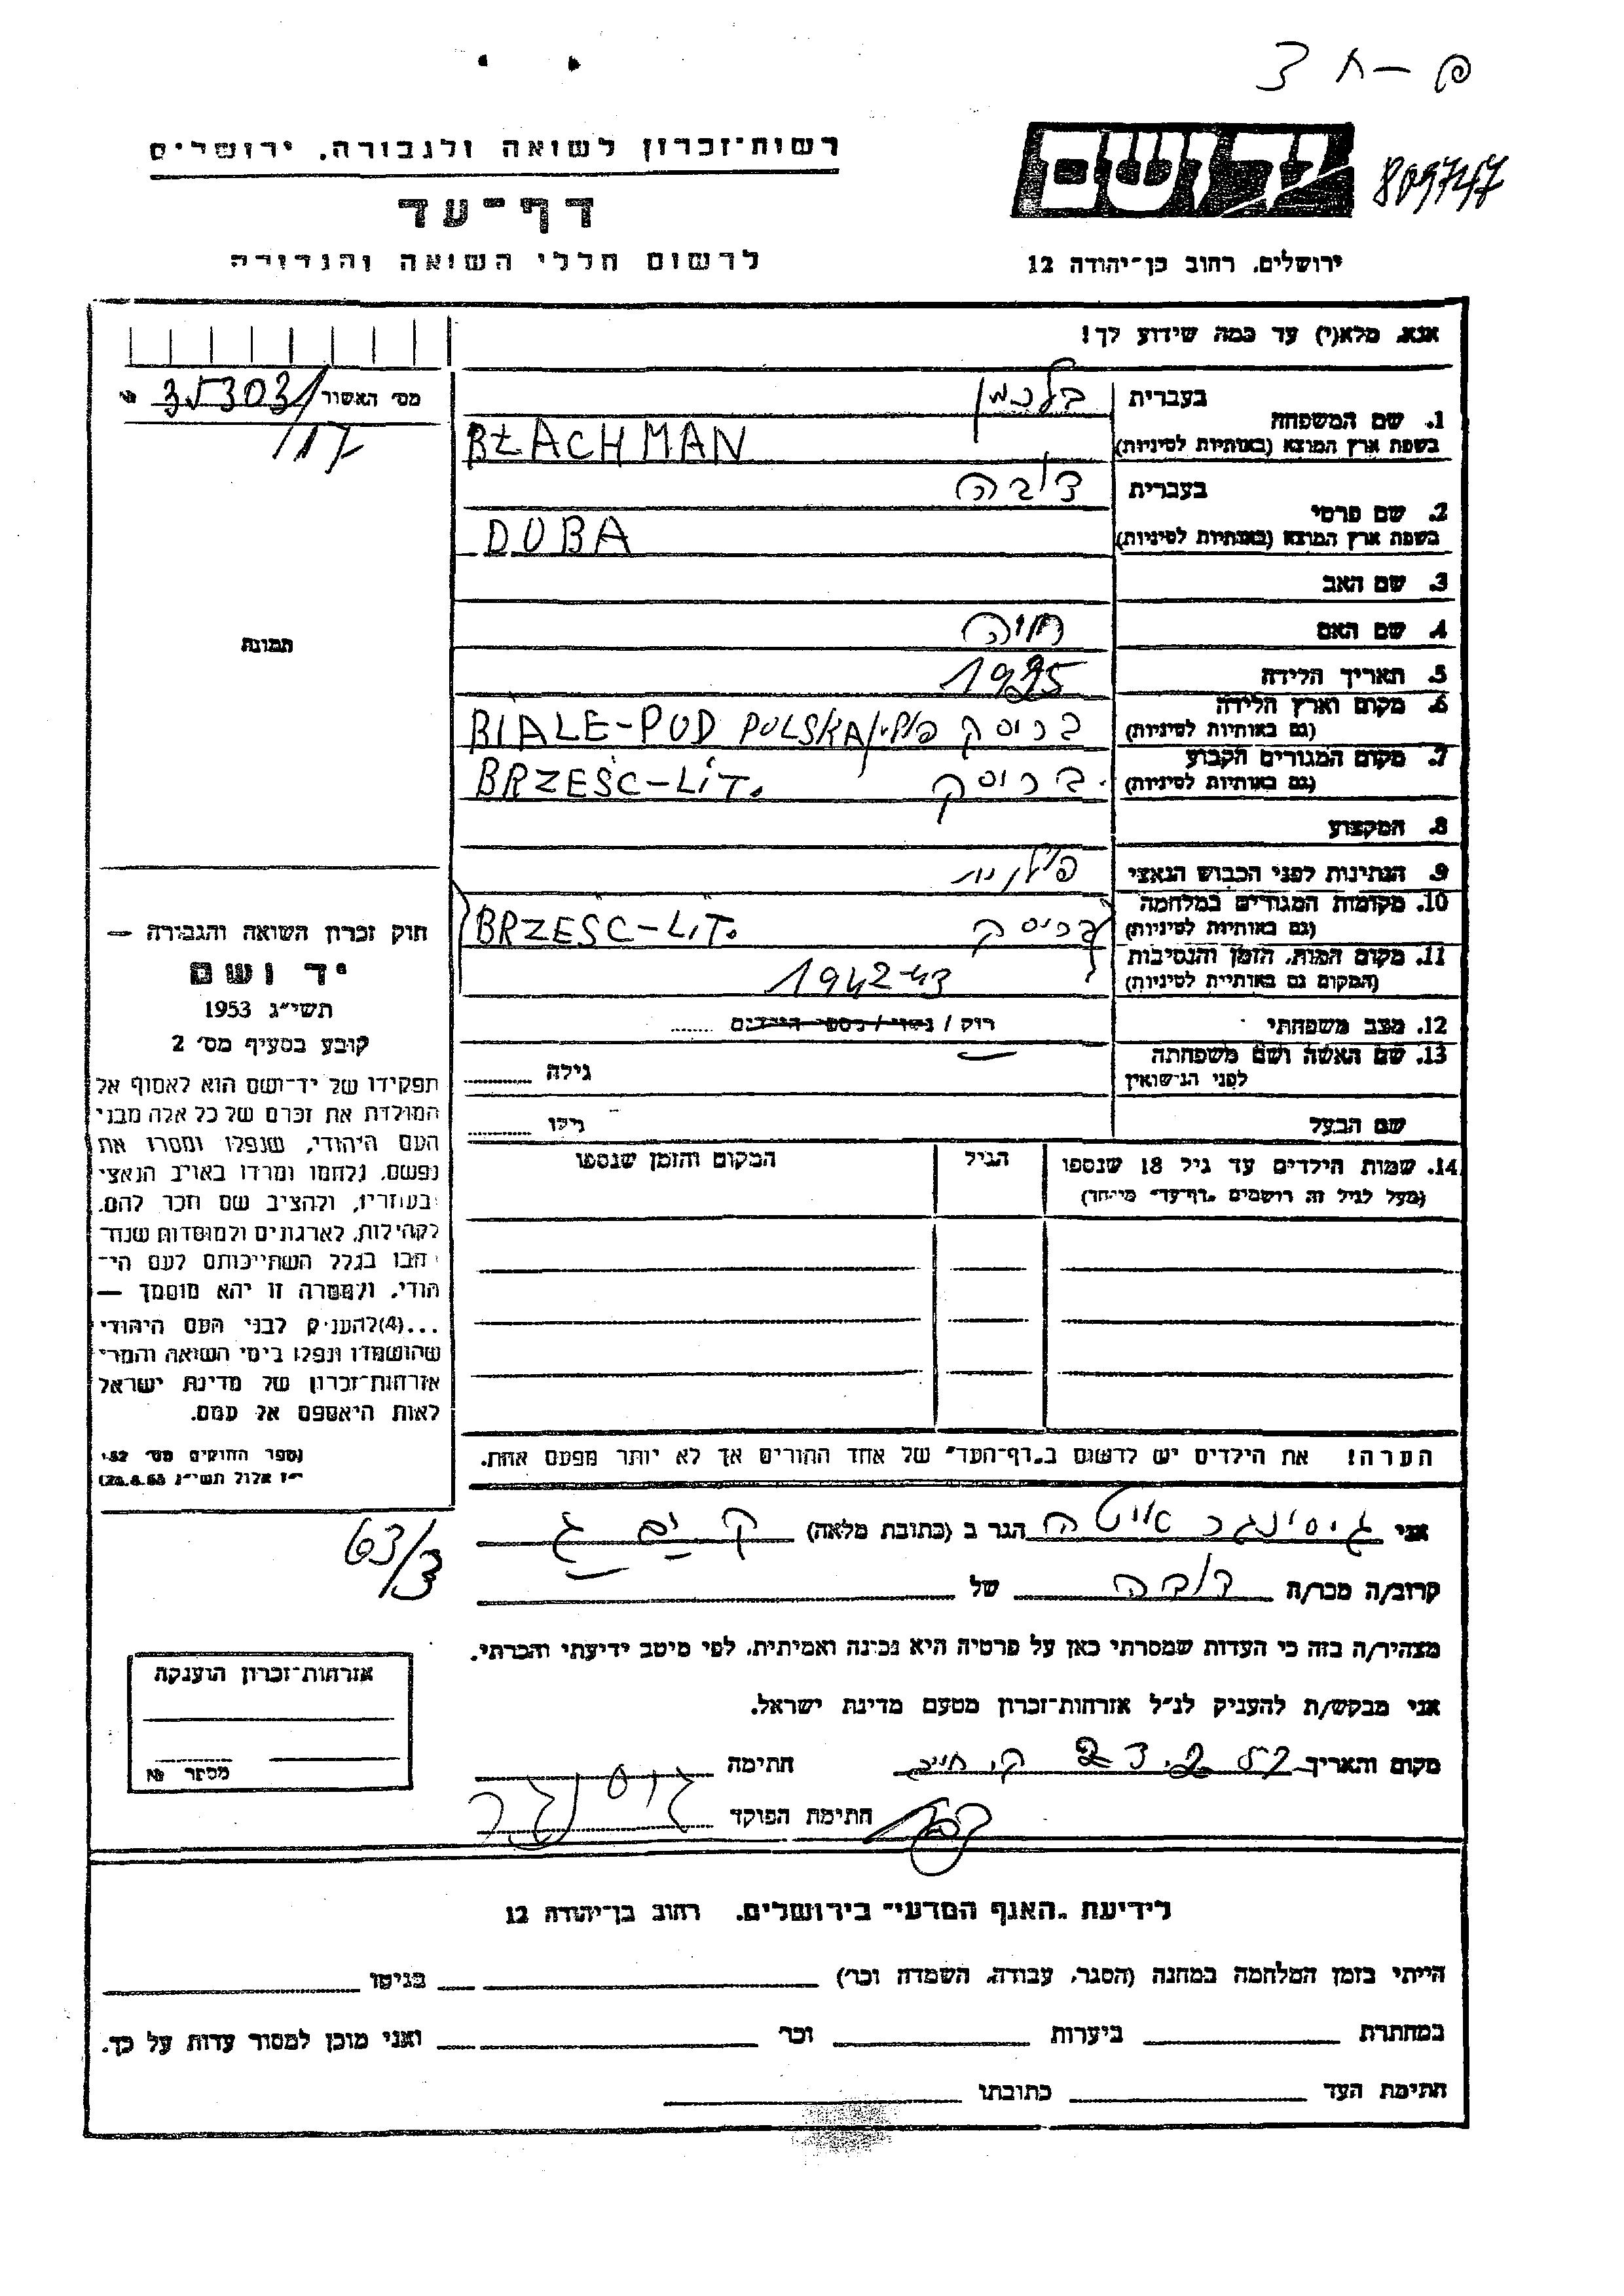 809747
רשות־זכרון לשואה ולגבורה, ירושלים
דף־עד
לרשום חללי השואה והגבורה
ידושם
ירושלים, רחוב בן־יהודה 12
אנא, מלא(י) עד כמה שידוע לך!
מס׳ האשור 35303/
117
1. שם המשפחה
בעברית בלכמן
בשפת ארץ המוצא (באותיות לטיניות) BŁACHMAN
2. שם פרטי
בעברית דובה
בשפת ארץ המוצא (באותיות לטיניות) DUBA
3. שם האב
4. שם האם חיה
5. תאריך הלידה 1925
6. מקום וארץ הלידה
(גם באותיות לטיניות) BIALE-POD POLSKA
7. מקום המגורים הקבוע
(גם באותיות לטיניות) בריסק BRZESC-LIT.
8. המקצוע
9. הנתינות לפני הכבוש הנאצי
10. מקומות המגורים במלחמה
(גם באותיות לטיניות) בריסק BRZESC-LIT.
11. מקום המות, הזמן והנסיבות
(המקום גם באותיות לטיניות) 1942-43
12. מצב משפחתי רווק / נשוי / מספר הילדים
13. שם האשה ושם משפחתה
לפני הנישואין גילה
שם הבעל גילו
14. שמות הילדים עד גיל 18 שנספו הגיל המקום והזמן שנספו
(מעל לגיל זה רושמים „דף־עד״ מיוחד)
הערה! את הילדים יש לרשום ב„דף־העד״ של אחד ההורים אך לא יותר מפעם אחת.
תמונה
חוק זכרון השואה והגבורה —
יד ושם
תשי״ג 1953
קובע בסעיף מס׳ 2
תפקידו של יד־ושם הוא לאסוף אל
המולדת את זכרם של כל אלה מבני
העם היהודי, שנפלו ומסרו את
נפשם, נלחמו ומרדו באויב הנאצי
ובעוזריו, ולהציב שם וזכר להם,
לקהילות, לארגונים ולמוסדות שנח־
רבו בגלל השתייכותם לעם הי־
הודי, ולמטרה זו יהא מוסמך —
...(4)להעניק לבני העם היהודי
שהושמדו ונפלו בימי השואה והמרי
אזרחות־זכרון של מדינת ישראל
לאות היאספם אל עמם.
(ספר החוקים מס׳ 132
י״ז אלול תשי״ג 28.8.53)
63/3
אני גיסינגר איטה הגר ב (כתובת מלאה)
קרוב/ה מכר/ה דובה של
מצהיר/ה בזה כי העדות שמסרתי כאן על פרטיה היא נכונה ואמיתית, לפי מיטב ידיעתי והכרתי.
אני מבקש/ת להעניק לנ״ל אזרחות־זכרון מטעם מדינת ישראל.
מקום והאריך חתימה
חתימת הפוקד
אזרחות־זכרון הוענקה
מספר №
לידיעת „האגף המדעי״ בירושלים, רחוב בן־יהודה 12
הייתי בזמן המלחמה במחנה (הסגר, עבודה, השמדה וכר׳) בגיטו
במחתרת ביערות וכר ואני מוכן למסור עדות על כך.
חתימת העד כתובתו